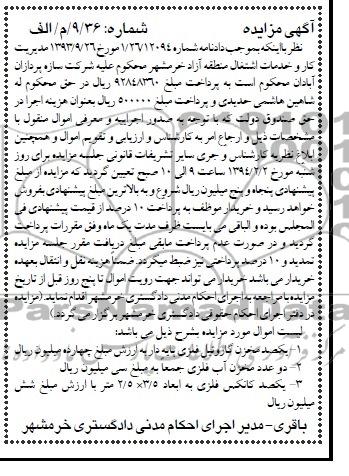 آگهی مزایده شماره: ۹/۳۶/م/الف
نظر باینکه بموجب دادنامه شماره ۱/۲۶/۱۲۰۹۴ مورخ ۱۳۹۳/۹/۲۶ مدیریت
کار و خدمات اشتغال منطقه آزاد خرمشهر محکوم علیه شرکت سازه پردازان
آبادان محکوم است به پرداخت مبلغ ۹۲۸۴۸۳۶۰ ریال در حق محکوم له
شاهین هاشمی حدیدی و پرداخت مبلغ ۵۰۰۰۰۰ ریال بعنوان هزینه اجرا در
حق صندوق دولت که با توجه به صدور اجراییه و معرفی اموال منقول با
مشخصات ذیل و ارجاع امر به کارشناس و ارزیابی و تقویم اموال و همچنین
ابلاغ نظریه کارشناس و جری سایر تشریفات قانونی جلسه مزایده برای روز
شنبه مورخ ۱۳۹۴/۲/۲ ساعت ۹ الی ۱۰ صبح تعیین گردید که مزایده از مبلغ
پیشنهادی پنجاه و پنج میلیون ریال شروع و به بالاترین مبلغ پیشنهادی بفروش
خواهد رسید و خریدار موظف به پرداخت ۱۰ درصد از قیمت پیشنهادی فی
المجلس بوده و الباقی می بایست ظرف مدت یک ماه وفق مقررات پرداخت
گردید و در صورت عدم پرداخت مابقی مبلغ دریافت مقرر جلسه مزایده
تمدید و ۱۰ درصد پرداختی نیز ضبط میگردد. ضمنا هزینه نقل و انتقال بعهده
خریدار می باشد خریدار می تواند جهت رویت اموال تا پنج روز قبل از تاریخ
مزایده با مراجعه به اجرای احکام مدنی دادگستری خرمشهر اقدام نماید. (مزایده
در دفتر اجرای احکام حقوقی دادگستری خرمشهر برگزار می گردد.)
لیست اموال مورد مزایده بشرح ذیل می باشد:
۱- یکصد مخزن گازوئیل فلزی پایه دار به ارزش مبلغ چهارده میلیون ریال
۲- دو عدد مخزن آب فلزی جمعا به مبلغ سی میلیون ریال
۳- یکصد کانکس فلزی به ابعاد ۳/۵× ۲/۵ متر با ارزش مبلغ شش
میلیون ریال
باقری- مدیر اجرای احکام مدنی دادگستری خرمشهر